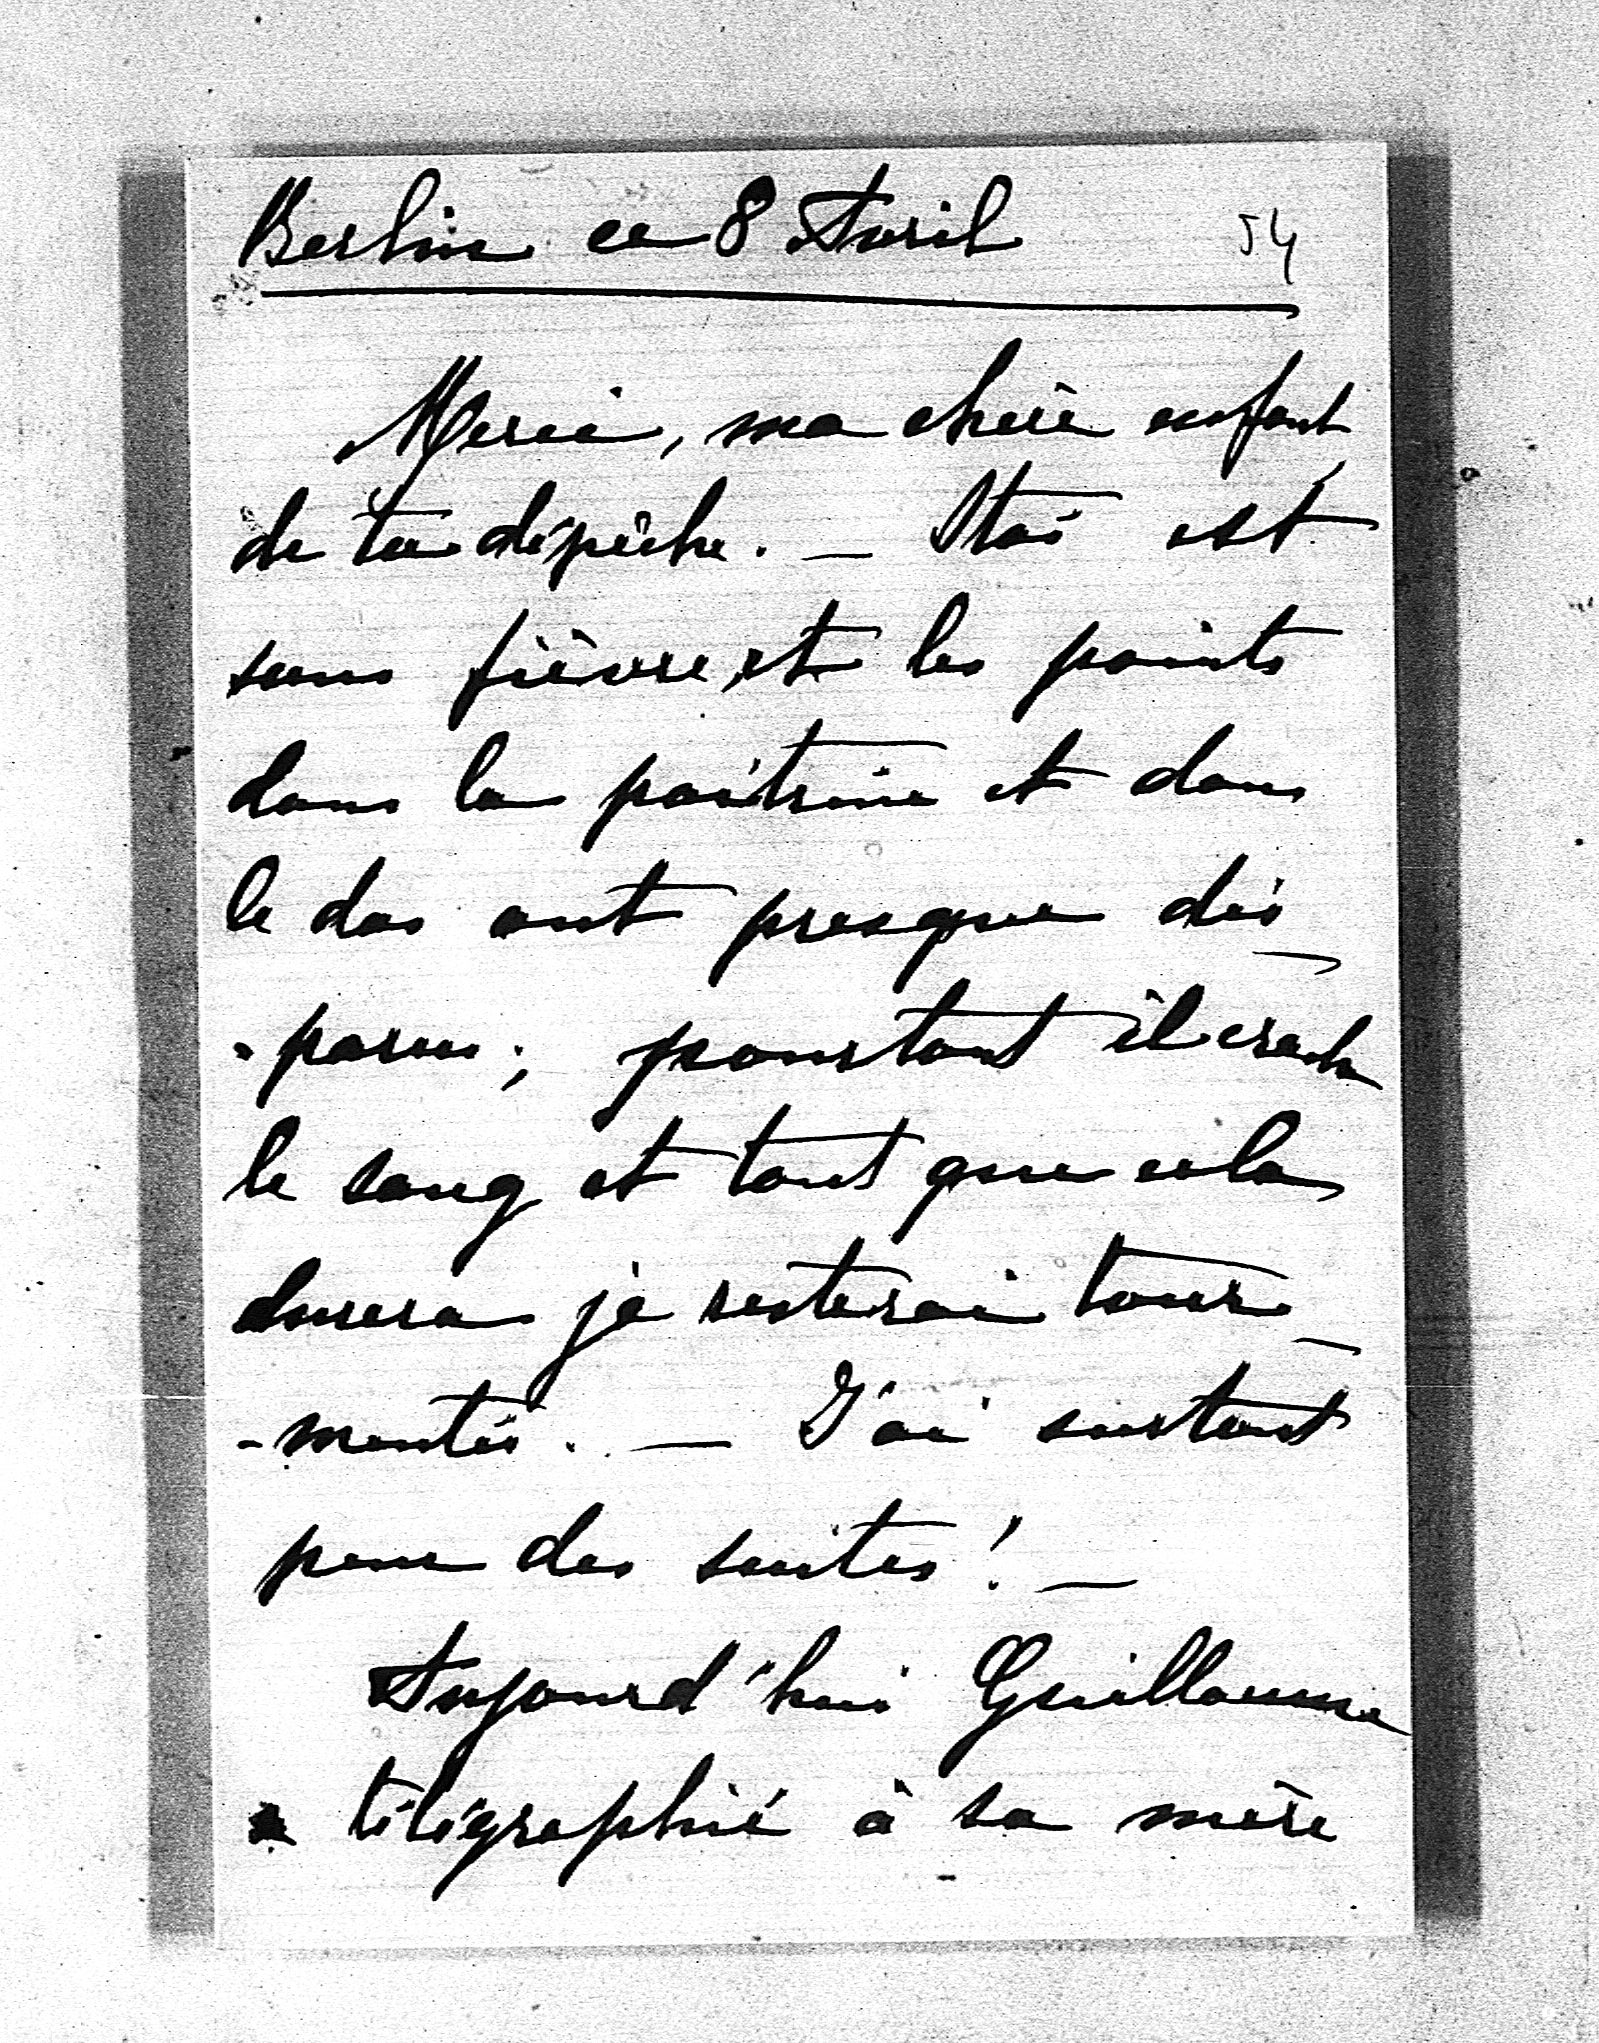 Berlin ce 8 Avril
54
Merci, ma chère enfant,
de ta dépêche. — Stas est
sans fièvre, et les points
dans la poitrine et dans
le dos ont presque dis-
-parus; pourtant il crache
le sang et tant que cela
durera je resterai tour-
-mentée. — J'ai surtout
peur des suites! —
Aujourd'hui Guillaume
a télégraphié à sa mère